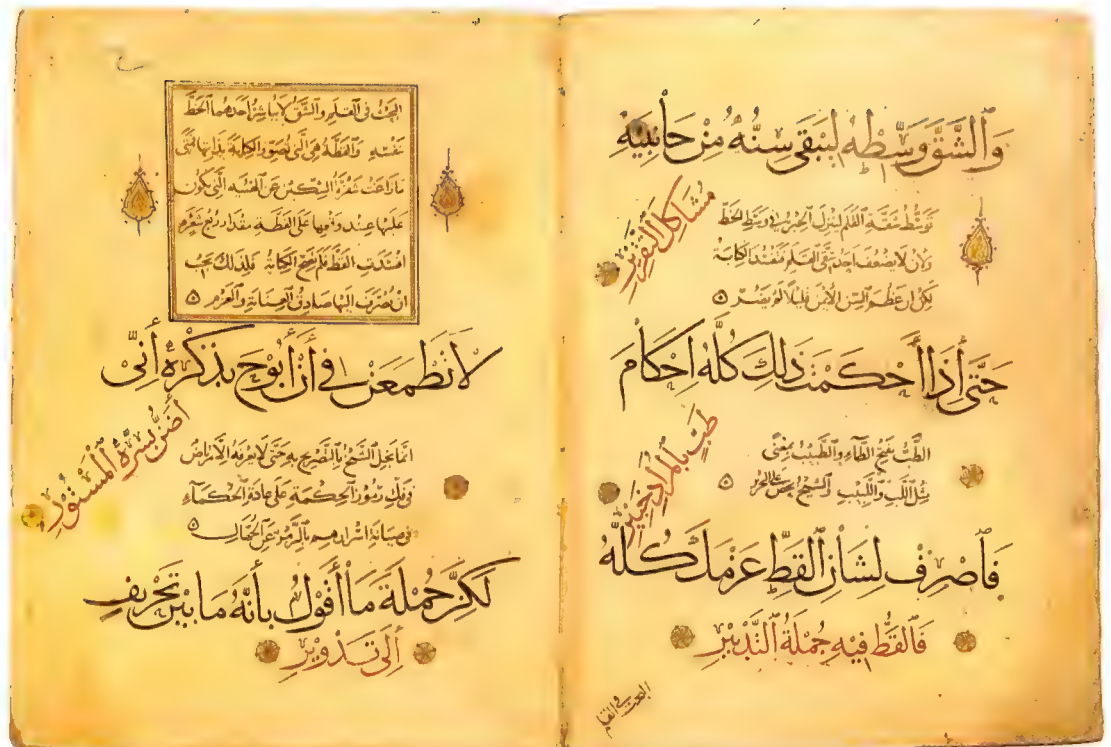 وَالشَّقَّ وَسِّطْهُ لِيَبْقَى سِنُّهُ مِنْ جَانِبَيْهِ
مُشَاكِلَ التَّقْدِيرِ
توسط شقة القلم لينزل الحبر في وسط الخط
ولان لا يضعف احد شقي القلم فتفسد الكتابة
لكن ان عظم السن الأيمن قليلا لم يضر
حَتَّى إِذَا أَحْكَمْتَ ذَلِكَ كُلَّهُ إِحْكَامَ
طَبٍّ بِالْمُرَادِ خَبِيرِ
الطب بفتح الطاء والطبيب بمعنى
مثل اللب واللبيب والشيخ
فَاصْرِفْ لِشَأْنِ الْقَطِّ عَزْمَكَ كُلَّهُ
فَالْقَطُّ فِيهِ جُمْلَةُ التَّدْبِيرِ
البحث في القلم
البحث في القلم والشق لا يباشر احدهما الخط
بنفسه والقطة هي التي تصور الكلمة بذاتها فمتى
ما زاغت شفرة السكين عن التي تكون
عليها عند على القطة مقدار ربع شعرة
القط فلم تصح الكتابة فلذلك يجب
ان تصرف اليها صادق العناية والعزم
لَا تَطْمَعَنْ فِي أَنْ أَبُوحَ بِذِكْرِهِ إِنِّي
أَضَنُّ بِسِرِّهِ الْمَسْتُورِ
انما بخل الشيخ بالتصريح به حتى لا يعرفه
رموز الحكمة على عادة الحكماء
في صيانة اسرارهم بالرموز عن الجهال
لَكِنَّ جُمْلَةَ مَا أَقُولُ بِأَنَّهُ مَا بَيْنَ تَحْرِيفٍ
إِلَى تَدْوِيرِ